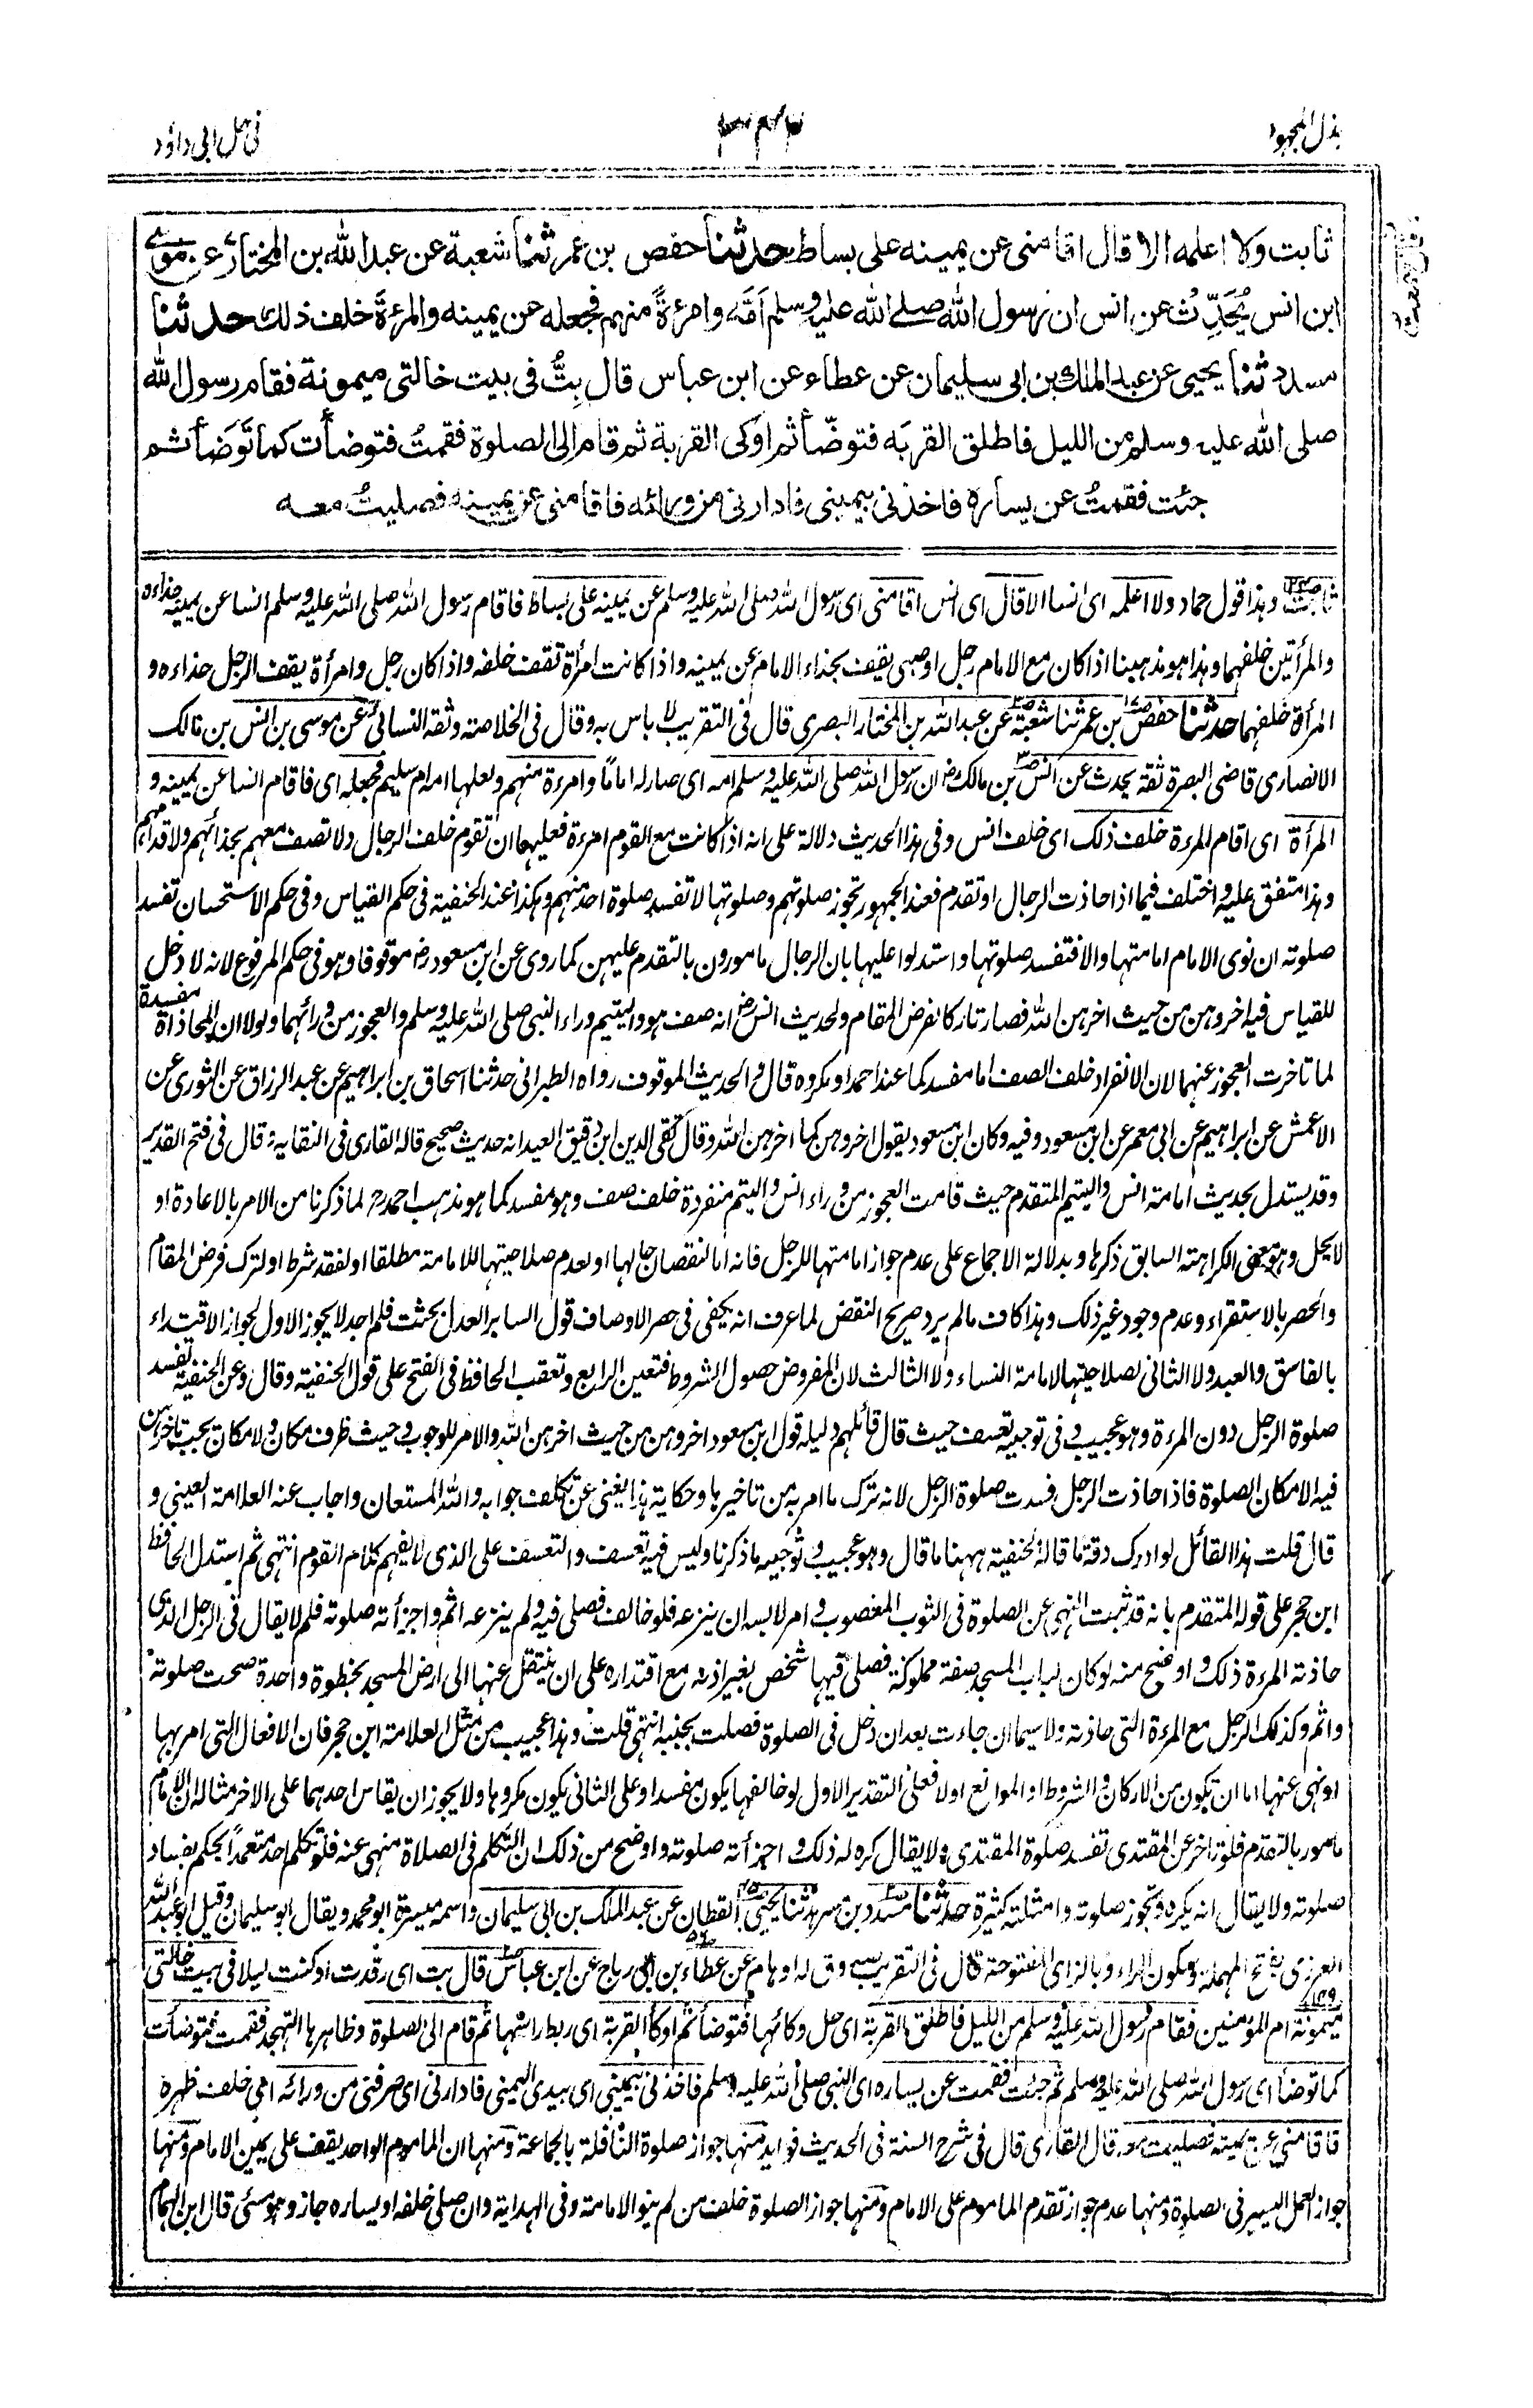 بذل المجهود
فى حل ابى داؤد
ثابت ولا اعلمه الا قال اقامنى عن يمينه على بساط حدثنا حفص بن عمر ثنا شعبة عن عبد الله بن المختار عن موسى
ابن انس يُحَدِّث عن انس ان رسول الله صلى الله عليه وسلم اَمَّه وامرءةً منهم فجعله عن يمينه والمرءةَ خلف ذلك حدثنا
مسدد ثنا يحيى عن عبد الملك بن ابى سليمان عن عطاء عن ابن عباس قال بِتُّ فى بيت خالتى ميمونة فقام رسول الله
صلى الله عليه وسلم من الليل فاطلق القربَه فتوضّأ ثم اوكَى القربة ثم قام الى الصلوة فقمتُ فتوضأت كما تَوَضأ ثم
جئت فقمتُ عن يساره فاخذنى بيمينى فادارنى من ورائه فاقامنى عن يمينه فصليتُ معه
ثابت وهذا قول حماد ولا اعلمه اى انسا الا قال اى انس اقامنى اى رسول الله صلى الله عليه وسلم عن يمينه على بساط فاقام رسول الله صلى الله عليه وسلم انسا عن يمينه حذاءه
والمرأتين خلفهما وهذا هو مذهبنا اذا كان مع الامام رجل او صبى يقف بحذاء الامام عن يمينه واذا كانت امرأة تقف خلفه واذا كان رجل وامرأة يقف الرجل حذاءه و
المرأة خلفهما حدثنا حفص بن عمر ثنا شعبة عن عبد الله بن المختار البصرى قال فى التقريب لا باس به وقال فى الخلاصة وثقه النسائى عن موسى بن انس بن مالك
الانصارى قاضى البصرة ثقة يحدث عن انس بن مالك رض ان رسول الله صلى الله عليه وسلم امه اى صار له اماما وامرءة منهم ولعلها ام ام سليم فجعله اى فاقام انسا عن يمينه و
المرأة اى اقام المرءة خلف ذلك اى خلف انس وفى هذا الحديث دلالة على انه اذا كانت مع القوم امرءة فعليها ان تقوم خلف الرجال ولا تصف معهم بحذائهم ولا قدامهم
وهذا متفق عليه واختلف فيما اذا حاذت الرجال او تقدم فعند الجمهور تجوز صلوتهم وصلوتها لا تفسد صلوة احد منهم وهكذا عند الحنفية فى حكم القياس وفى حكم الاستحسان تفسد
صلوته ان نوى الامام امامتها والا فتفسد صلوتها واستدلوا عليها بان الرجال مامورون بالتقدم عليهن كما روى عن ابن مسعود رض موقوفا وهو فى حكم المرفوع لانه لا دخل
للقياس فيه اخروهن من حيث اخرهن الله فصار تاركا لفرض المقام ولحديث انس رض انه صف هو واليتيم وراء النبى صلى الله عليه وسلم والعجوز من ورائهما ولولا ان المحاذاة مفسدة
لما تاخرت العجوز عنهما لان الانفراد خلف الصف اما مفسد كما عند احمد او مكروه قال والحديث الموقوف رواه الطبرانى حدثنا اسحاق بن ابراهيم عن عبد الرزاق عن الثورى عن
الاعمش عن ابراهيم عن ابى معمر عن ابن مسعود وفيه وكان ابن مسعود يقول اخروهن كما اخرهن الله وقال تقى الدين ابن دقيق العيد انه حديث صحيح قاله القارى فى النقاية قال فى فتح القدير
وقد يستدل بحديث امامة انس واليتيم المتقدم حيث قامت العجوز من وراء انس واليتيم منفردة خلف صف وهو مفسد كما هو مذهب احمد رح لما ذكرنا من الامر بالاعادة او
لا يحل وهو معنى الكراهة السابق ذكرها وبدلالة الاجماع على عدم جواز امامتها للرجل فانه اما لنقصان حالها او لعدم صلاحيتها للامامة مطلقا او لفقد شرط او لترك فرض المقام
والحصر بالاستقراء وعدم وجود غير ذلك وهذا كاف ما لم يرد صريح النقض لما عرف انه يكفى فى حصر الاوصاف قول السابر العدل بحثت فلم اجد لا يجوز الاول لجواز الاقتداء
بالفاسق والعبد ولا الثانى لصلاحيتها لامامة النساء ولا الثالث لان المفروض حصول الشروط فتعين الرابع وتعقب الحافظ فى الفتح على قول الحنفية وقال وعن الحنفية تفسد
صلوة الرجل دون المرءة وهو عجيب وفى توجيهه تعسف حيث قال قائلهم دليله قول ابن مسعود اخروهن من حيث اخرهن الله والامر للوجوب وحيث ظرف مكان ولا مكان يجب تاخرهن
فيه الا مكان الصلوة فاذا حاذت الرجل فسدت صلوة الرجل لانه ترك ما امر به من تاخيرها وحكاية هذا يغنى عن تكلف جوابه والله المستعان واجاب عنه العلامة العينى و
قال قلت هذا القائل لو ادرك دقة ما قاله الحنفية ههنا ما قال وهو عجيب وتوجيهه ما ذكرنا وليس فيه تعسف والتعسف على الذى لا يفهم كلام القوم انتهى ثم استدل الحافظ
ابن حجر على قوله المتقدم بانه قد ثبت النهى عن الصلوة فى الثوب المغصوب وامر لابسه ان ينزعه فلو خالف فصلى فيه ولم ينزعه اثم واجزأته صلوته فلم لا يقال فى الرجل الذى
حاذته المرءة ذلك واوضح منه لو كان لباب المسجد صفة مملوكة فصلى فيها شخص بغير اذنه مع اقتداره على ان ينتقل عنها الى ارض المسجد بخطوة واحدة صحت صلوته
واثم وكذلك الرجل مع المرءة التى حاذته ولا سيما ان جاءت بعد ان دخل فى الصلوة فصلت بجنبه انتهى قلت وهذا عجيب من مثل العلامة ابن حجر فان الافعال التى امر بها
او نهى عنها اما ان تكون من الاركان والشروط او الموانع اولا فعلى التقدير الاول لو خالفها يكون مفسدا وعلى الثانى يكون مكروها ولا يجوز ان يقاس احدهما على الاخر مثاله ان الامام
مامور بالتقدم فلو تاخر عن المقتدى تفسد صلوة المقتدى ولا يقال كره له ذلك واجزأته صلوته واوضح من ذلك ان التكلم فى الصلاة منهى عنه فلو تكلم احد متعمداً يحكم بفساد
صلوته ولا يقال انه يكره وتجوز صلوته وامثلته كثيرة حدثنا مسدد بن سرهد ثنا يحيى القطان عن عبد الملك بن ابى سليمان واسمه ميسرة ابو محمد ويقال ابو سليمان وقيل ابو عبد الله
العرزمى بفتح المهملة وسكون الراء وبالزاى المفتوحة قال فى التقريب صدوق له اوهام عن عطاء بن ابى رباح عن ابن عباس قال بت اى رقدت او كنت ليلا فى بيت خالتى
ميمونة ام المؤمنين فقام رسول الله عليه وسلم من الليل فاطلق القربة اى حل وكائها فتوضأ ثم اوكأ القربة اى ربط راسها ثم قام الى الصلوة وظاهرها التهجد فقمت فتوضأت
كما توضأ اى رسول الله صلى الله عليه وسلم ثم جئت فقمت عن يساره اى النبى صلى الله عليه وسلم فاخذنى بيمينى اى بيدى اليمنى فادارنى اى صرفنى من ورائه اى خلف ظهره
فاقامنى عن يمينه فصليت معه قال القارى قال فى شرح السنة فى الحديث فوايد منها جواز صلوة النافلة بالجماعة ومنها ان الماموم الواحد يقف على يمين الامام ومنها
جواز العمل اليسير فى الصلوة ومنها عدم جواز تقدم الماموم على الامام ومنها جواز الصلوة خلف من لم ينو الامامة وفى الهداية وان صلى خلفه او يساره جاز وهو مسئ قال ابن الهمام